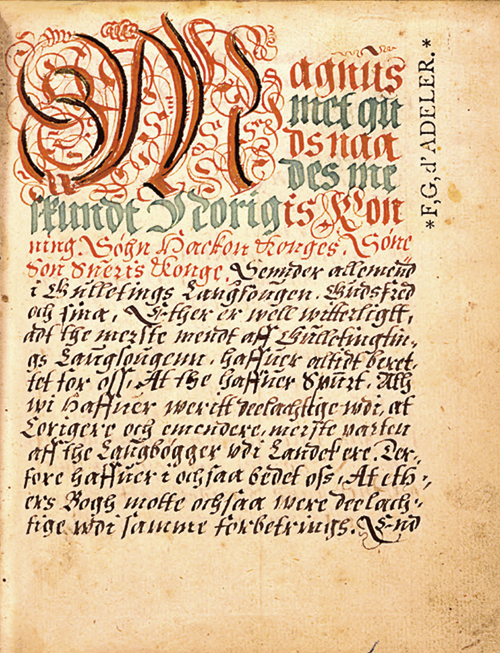 Magnus
met gu
ds naa
des me
skundt Norigis Kon
ning. Søgn Hackon Konges. Søne
Søn Sueris Konge. Sennder allemend
i Gulletings Laugsougen. Gudsfred
och sina, Ether er well witterligtt,
adt the merste mendt aff Gulletingtin-
gs Laugsougenn, haffuer altidt beret-
tet for oss, At the haffuer Spurt. Ath
wi Haffuer weritt deelachtige wdi, at
Corigere och emendere, merste parten
aff the Laugbøgger wdi Landet ere. Der-
fore haffuer i ochsaa bedet oss, At eth-
ers Bogh motte ochsaa were deelach-
tige wdi samme forbetrings. End
*F,G,d'ADELER.*